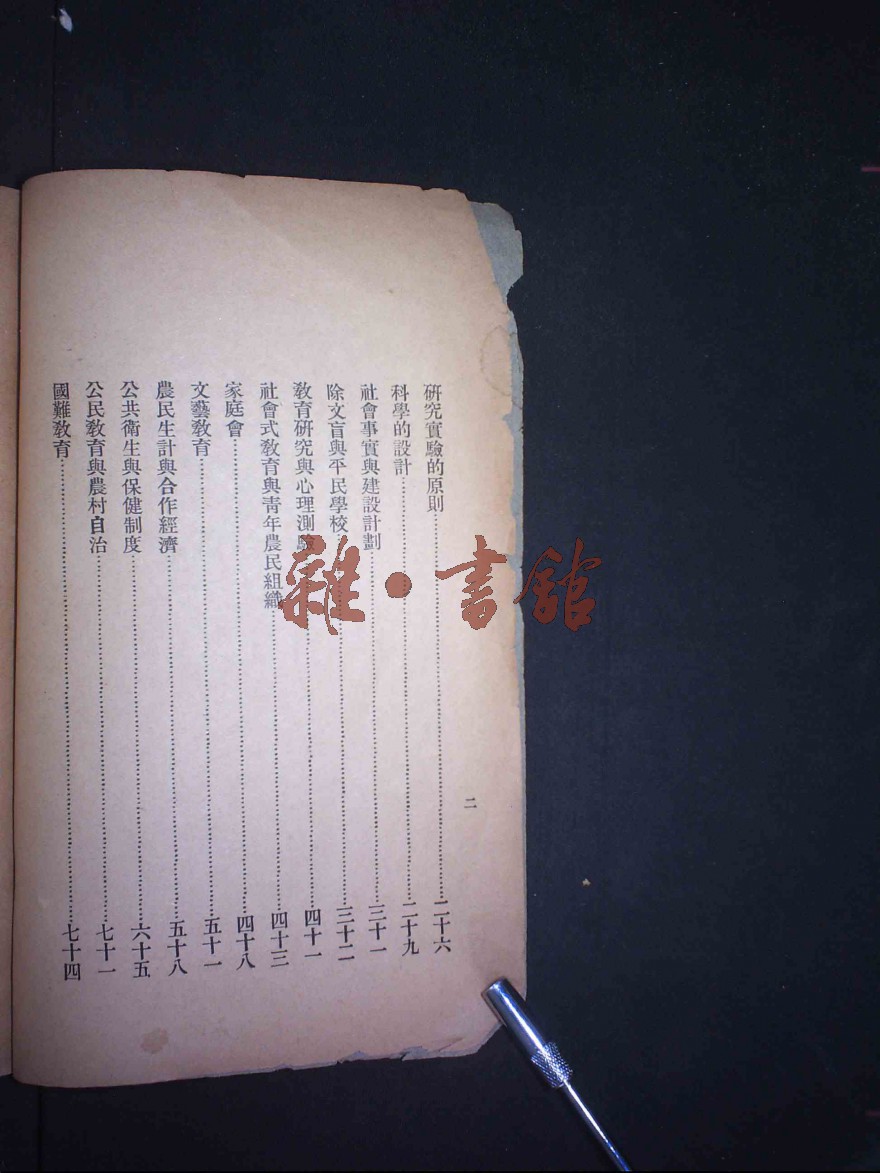 研究實驗的原則……二十六
科學的設計……二十九
社會事實與建設計劃……三十一
除文盲與平民學校……三十二
教育研究與心理測驗……四十一
社會式教育與青年農民組織……四十三
家庭會……四十八
文藝教育……五十一
農民生計與合作經濟……五十八
公共衛生與保健制度……六十五
公民教育與農村自治……七十一
國難教育……七十四
二
雜·書館